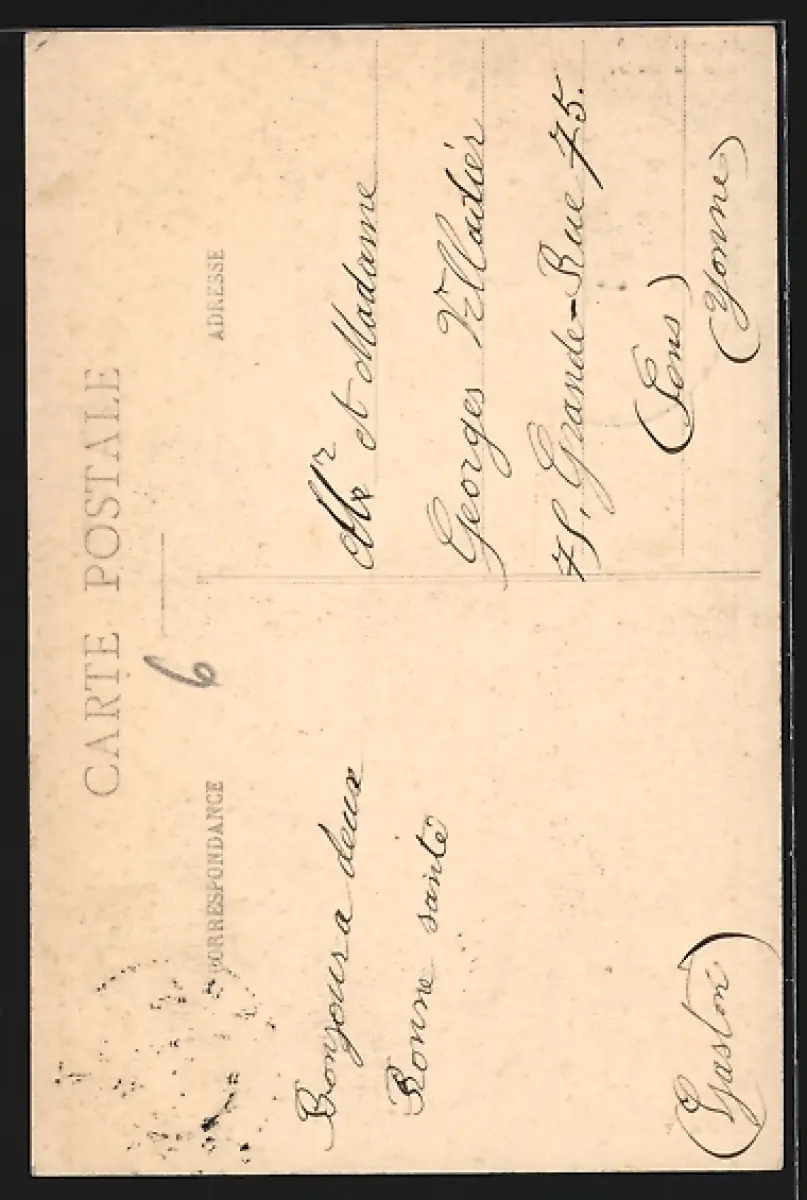 CARTE POSTALE
CORRESPONDANCE
ADRESSE
6
Bonjour a deux
Bonne santé
(Gaston)
Mr et Madame
Georges
75, Grande-Rue 75.
(Sens)
(Yonne)